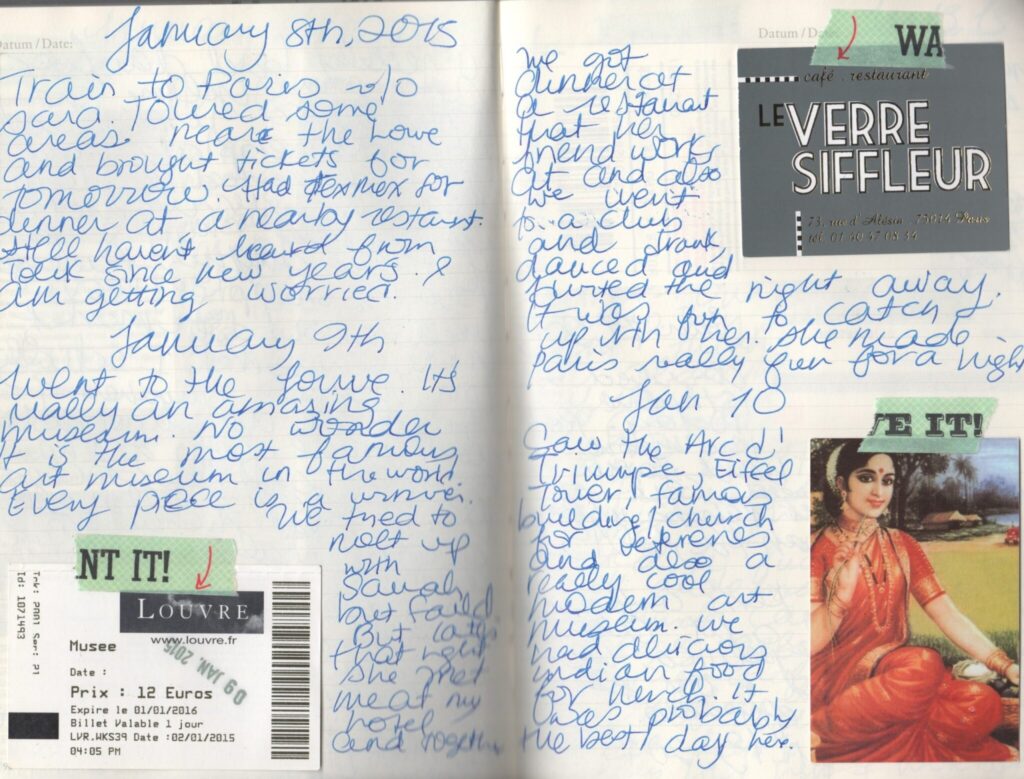 Datum / Date:
January 8th, 2015
Train to Paris w/o
Sara. Toured some
areas near the Louve
and brought tickets for
tomorrow. Had texmex for
dinner at a nearby restaurant.
Still haven't heard from
since new years. I
am getting worried.
January 9th
Went to the Louve. Its
really an amazing
museum. No wonder
it is the most famous
art museum in the world.
Every piece is a winner.
We tried to
meet up
with
Sarah
but failed
But later
that night
she met
me at my
hotel
and together
NT IT!
LOUVRE
www.louvre.fr
Musee
09 JAN. 2015
Date :
Prix : 12 Euros
Expire le 01/01/2016
Billet Valable 1 jour
LVR.WKS34 Date :02/01/2015
04:05 PM
Id: 1071493
Datum / Da
we got
dinner at
a restaurant
that her
friend works
at and also
we went
to a club
and drank,
danced and
flirted the night away.
It was fun to catch
up with her. She made
Paris really fun for a night
WA
café . restaurant
LE VERRE
SIFFLEUR
73, rue d'Alésia . 75014 Paris
Jan 10
Saw the Arc d'
Triumpe, Eiffel
Tower, famous
building/church
for
and also a
really cool
modern art
museum. We
had delicious
indian food
for lunch. It
was probably
the best day here.
VE IT!